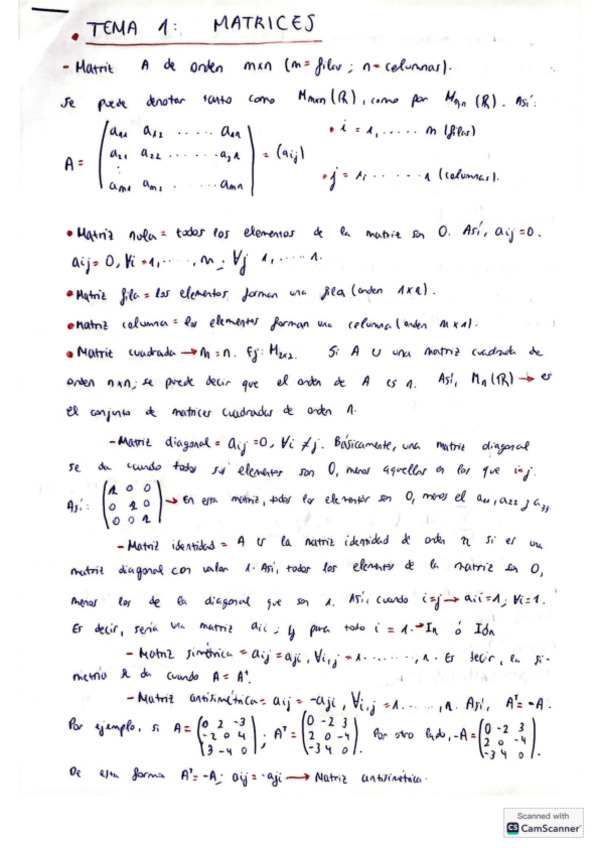 TEMA 1: MATRICES
- Matriz A de orden mxn (m = filas ; n = columnas).
Se puede denotar tanto como Mmxn (R), como por Mm,n (R). Así:
A = ( a11 a12 ..... a1n
a21 a22 ....... a2n
am1 am2 ...... amn ) = (aij)
• i = 1, ..... m (filas)
• j = 1, ...... n (columnas).
• Matriz nula = todos los elementos de la matriz son 0. Así, aij = 0.
aij = 0, ∀i = 1, ....., m ; ∀j 1, ..... n.
• Matriz fila = los elementos forman una fila (orden 1xn).
• Matriz columna = los elementos forman una columna (orden mx1).
• Matriz cuadrada → m = n. Ej: M2x2. Si A es una matriz cuadrada de
orden nxn; se puede decir que el orden de A es n. Así, Mn (R) → es
el conjunto de matrices cuadradas de orden n.
- Matriz diagonal = aij = 0, ∀i ≠ j. Básicamente, una matriz diagonal
se da cuando todos sus elementos son 0, menos aquellos en los que i=j.
Así: ( 1 0 0
0 1 0
0 0 1 ) → En esta matriz, todos los elementos son 0, menos el a11, a22 y a33.
- Matriz identidad = A es la matriz identidad de orden n si es una
matriz diagonal con valor 1. Así, todos los elementos de la matriz son 0,
menos los de la diagonal que son 1. Así, cuando i=j → aii = 1; ∀i = 1.
Es decir, sería una matriz aii; y para todo i = 1. → In ó Idn
- Matriz simétrica = aij = aji, ∀i,j = 1........, n. Es decir, la si-
metría se da cuando A = Aᵗ.
- Matriz antisimétrica = aij = -aji, ∀i,j = 1....., n. Así, Aᵗ = -A.
Por ejemplo, si A = ( 0 2 -3
-2 0 4
3 -4 0 ) ; Aᵗ = ( 0 -2 3
2 0 -4
-3 4 0 ) . Por otro lado, -A = ( 0 -2 3
2 0 -4
-3 4 0 ) .
De esta forma Aᵗ = -A ; aij = -aji → Matriz antisimétrica.
Scanned with
CS CamScanner